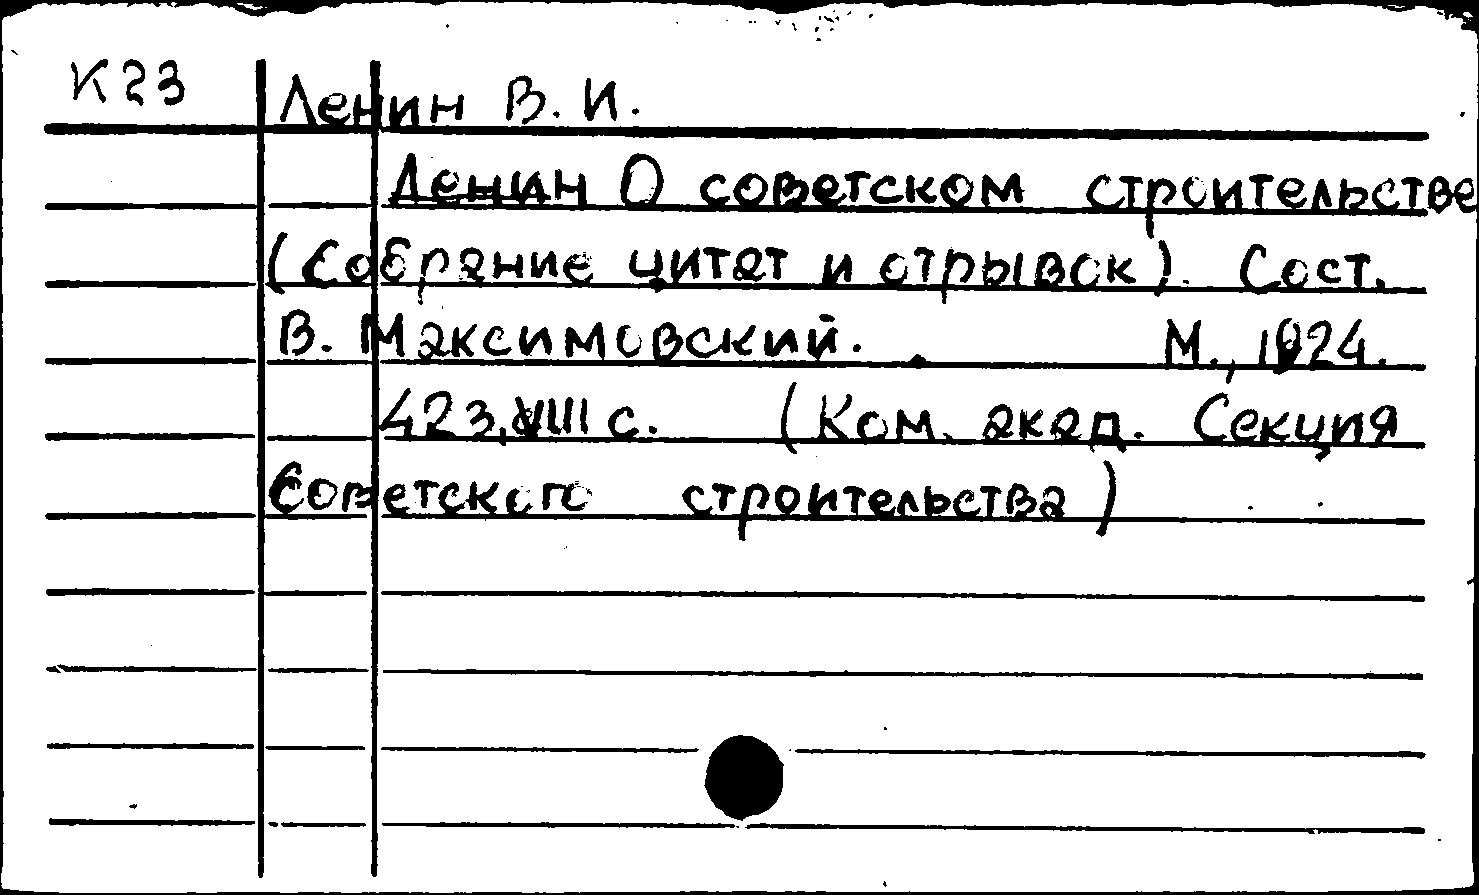 К23
Ленин В. И.
Ленин О советском строительстве
(Собрание цитат и отрывок). Сост.
В. Максимовский. М., 1924.
423, VIII с. (Ком. акад. Секция
Советского строительства)